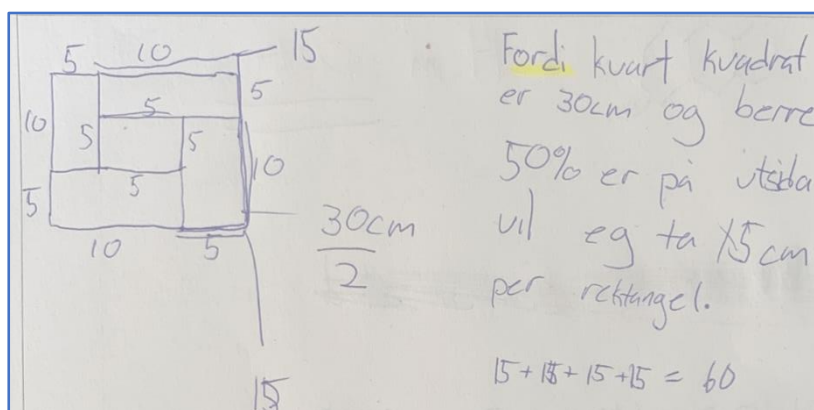 5 10 15
5
10 5 5 5 10
5 5
10 5
30cm
2
15
Fordi kvart kvadrat
er 30cm og berre
50% er på utsida
vil eg ta 15cm
per rektangel.
15 + 15 + 15 + 15 = 60